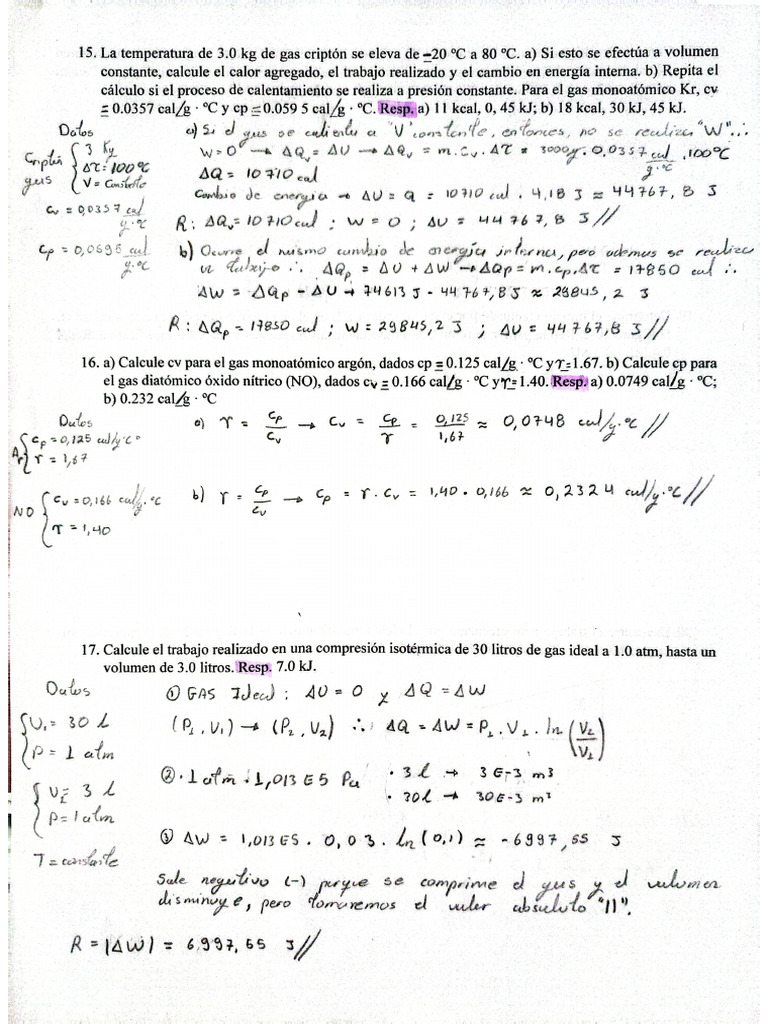 15. La temperatura de 3.0 kg de gas criptón se eleva de −20 ºC a 80 ºC. a) Si esto se efectúa a volumen
constante, calcule el calor agregado, el trabajo realizado y el cambio en energía interna. b) Repita el
cálculo si el proceso de calentamiento se realiza a presión constante. Para el gas monoatómico Kr, cv
= 0.0357 cal/g · ºC y cp = 0.059 5 cal/g · ºC. Resp. a) 11 kcal, 0, 45 kJ; b) 18 kcal, 30 kJ, 45 kJ.
Datos
Criptón gas { 3 Kg
Δτ = 100ºC
V = Constante
cv = 0,0357 cal/g·ºC
cp = 0,0595 cal/g·ºC
a) Si el gas se calienta a "V" constante, entonces, no se realiza "W" ∴
W = 0 → ΔQv = ΔU → ΔQv = m . Cv . Δτ = 3000g . 0,0357 cal/g·ºC . 100ºC
ΔQ = 10 710 cal
Cambio de energía → ΔU = Q = 10710 cal . 4,18 J ≈ 44767,8 J
R : ΔQv = 10710 cal ; W = 0 ; ΔU = 44767,8 J //
b) Ocurre el mismo cambio de energía interna, pero ademas se realiza
un trabajo ∴ ΔQp = ΔU + ΔW → ΔQp = m . cp . Δτ = 17850 cal ∴
ΔW = ΔQp − ΔU → 74613 J - 44767,8 J ≈ 29845,2 J
R : ΔQp = 17850 cal ; W = 29845,2 J ; ΔU = 44767,8 J //
16. a) Calcule cv para el gas monoatómico argón, dados cp = 0.125 cal/g · ºC y ϒ=1.67. b) Calcule cp para
el gas diatómico óxido nítrico (NO), dados cv = 0.166 cal/g · ºC y ϒ= 1.40. Resp. a) 0.0749 cal/g · ºC;
b) 0.232 cal/g · ºC
Datos
Ar { cp = 0,125 cal/g·Cº
ϒ = 1,67
a) ϒ = cp/cv → cv = cp/ϒ = 0,125/1,67 ≈ 0,0748 cal/g·ºC //
NO { cv = 0,166 cal/g·ºC
ϒ = 1,40
b) ϒ = cp/cv → cp = ϒ . cv = 1,40 . 0,166 ≈ 0,2324 cal/g·ºC //
17. Calcule el trabajo realizado en una compresión isotérmica de 30 litros de gas ideal a 1.0 atm, hasta un
volumen de 3.0 litros. Resp. 7.0 kJ.
Datos
{ V₁ = 30 l
P = 1 atm
{ V₂ = 3 l
P = 1 atm
T = constante
① GAS Ideal : ΔU = 0 y ΔQ = ΔW
(P₁, V₁) → (P₂, V₂) ∴ ΔQ = ΔW = P₁ . V₁ . ln (V₂/V₁)
② · 1 atm = 1,013 E5 Pa · 3 l → 3 E-3 m³
· 30 l → 30 E-3 m³
③ ΔW = 1,013 E5 . 0,03 . ln (0,1) ≈ -6997,55 J
Sale negativo (-) porque se comprime el gas y el volumen
disminuye, pero tomaremos el valor absoluto "||".
R = |ΔW| = 6.997,55 J //